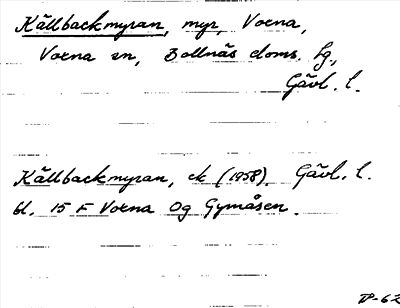 Källbackmyran, myr, Voxna,
Voxna sn, Bollnäs doms. fg.,
Gävl. l.
Källbackmyran, ek (1958). Gävl. l.
bl. 15 F Voxna Og Gymåsen.
P-62